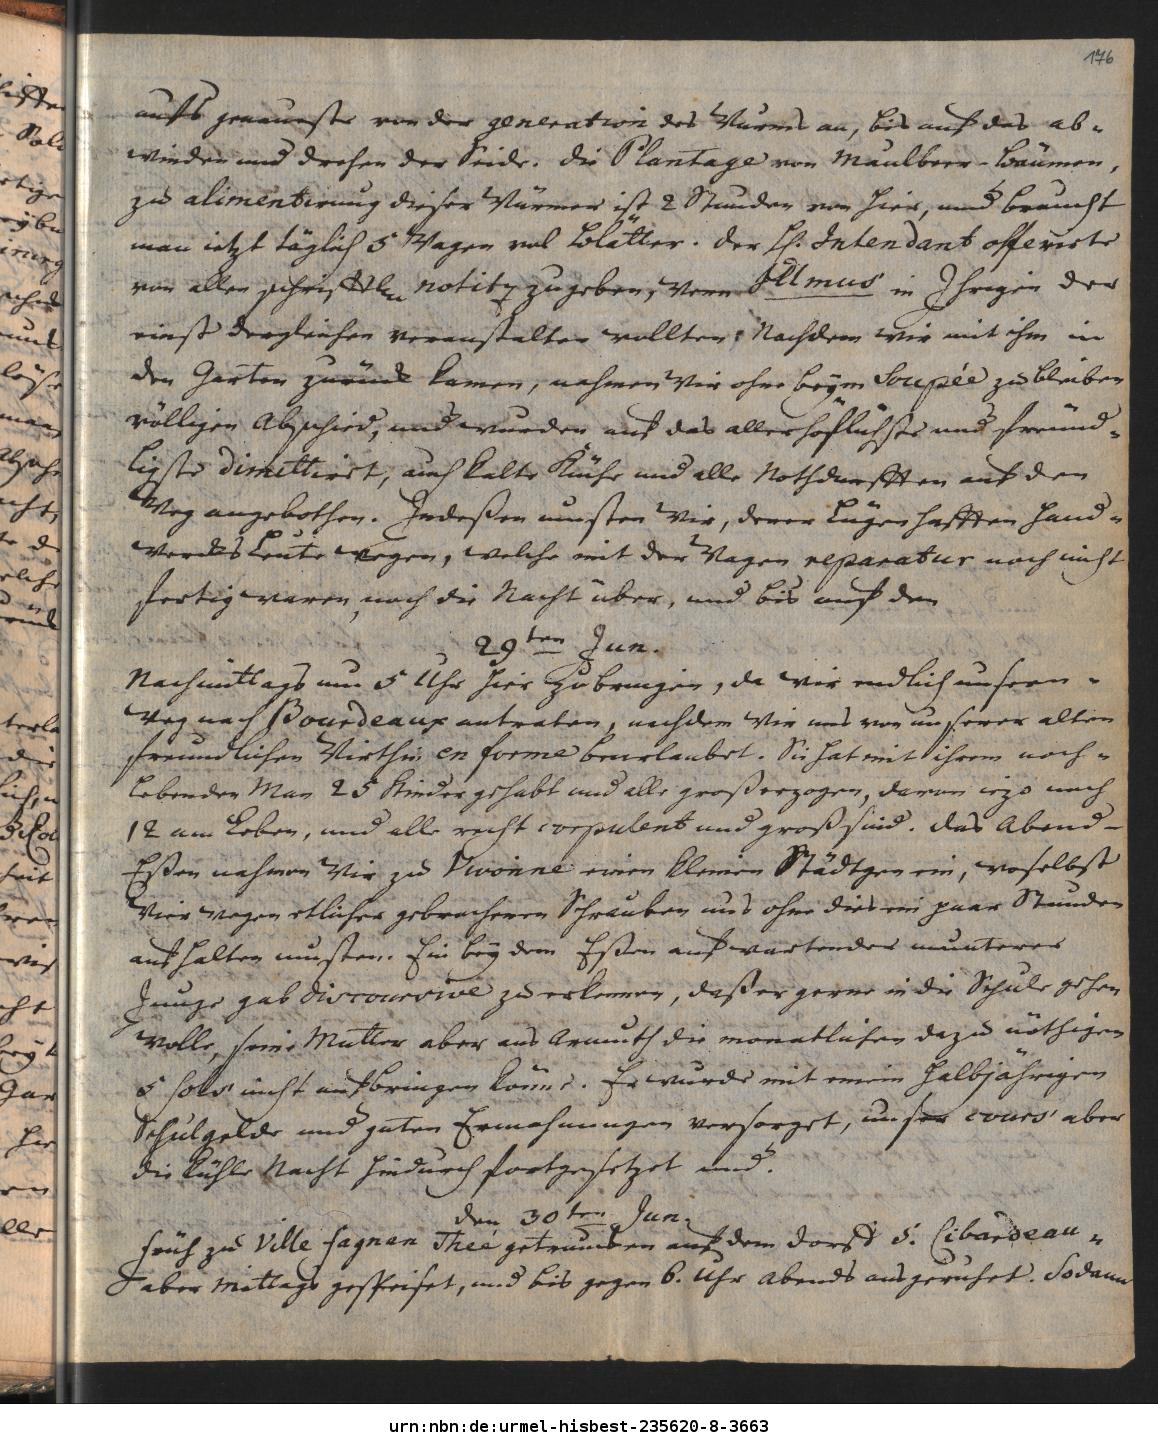 176
aufs genaueste von der generation des Wurms an, bis auf das ab-
winden und drehen der Seide. die Plantage von Maulbeer-Bäumen,
zu alimentirung dieser Würmer ist 2 Stunden von hier, und braucht
man ietzt täglich 5 Wagen vol Blätter. der H. Intendant offerirte
von allen schrifftln notitz zu geben, wenn Illmus in Ihrigen der
einst dergleichen veranstalten wollten; Nachdem wir mit ihm in
den Garten zurück kamen, nahmen wir ohne beym Soupée zu bleiben
völligen Abschied, und wurden auf das allerhöflichste und freünd-
ligste dimittirt, auch kalte Küche und alle Nothdurfften auf den
Weg angebothen. Indeßen musten wir, derer Lügenhafften Hand-
wercks Leute wegen, welche mit der Wagen reparatur noch nicht
fertig waren, noch die Nacht über, und bis auf den
29ten Jun.
Nachmittags um 5 Uhr hier zubringen, da wir endlich unsern
Weg nach Bourdeaux antraten, nachdem wir uns von unserer alten
freundlichen Wirthin en forme beurlaubet. Sie hat mit ihrem noch-
lebenden Man 25 Kinder gehabt und alle groß erzogen, davon iezo noch
12 am Leben, und alle recht corpulent und groß sind. das Abend-
Eßen nahmen wir zu Vivonne einen kleinen Städtgen ein, woselbst
wir wegen etlicher gebrochenen Schrauben uns ohne dies ein paar Stunden
aufhalten musten. Ein bey dem Eßen aufwartender munterer
Junge gab discoursive zu erkennen, daß er gerne in die Schule gehen
wolle, seine Mutter aber aus Armuth die monatlichen dazu nöthigen
5 sols nicht aufbringen könne. Er wurde mit einem halbjährigen
Schulgelde und guten Ermahnungen versorget, unser cours aber
die kühle Nacht hindurch fortgesetzet und.
den 30ten Jun.
früh zu Ville fagnan Theé getruncken auf dem dorff S. Cibardeau
aber Mittags gespeiset, und bis gegen 6. Uhr Abends ausgeruhet. Sodann
urn:nbn:de:urmel-hisbest-235620-8-3663